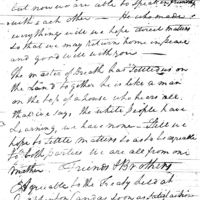 but now we are able to speak in friendship
with each other as He who made
everything will we hope direct matters
so that we may return home in peace
and good will with you
The master of Breath has settled us on
the Land together he is like a man
on the top of a house who has all
that we says the white People have
Learning, we have none. Still we
hope to settle matters so as to be agreeable
to both parties we are all from one
mother Friends & Brothers
Agreeable to the Treaty held at
Lands as soon as